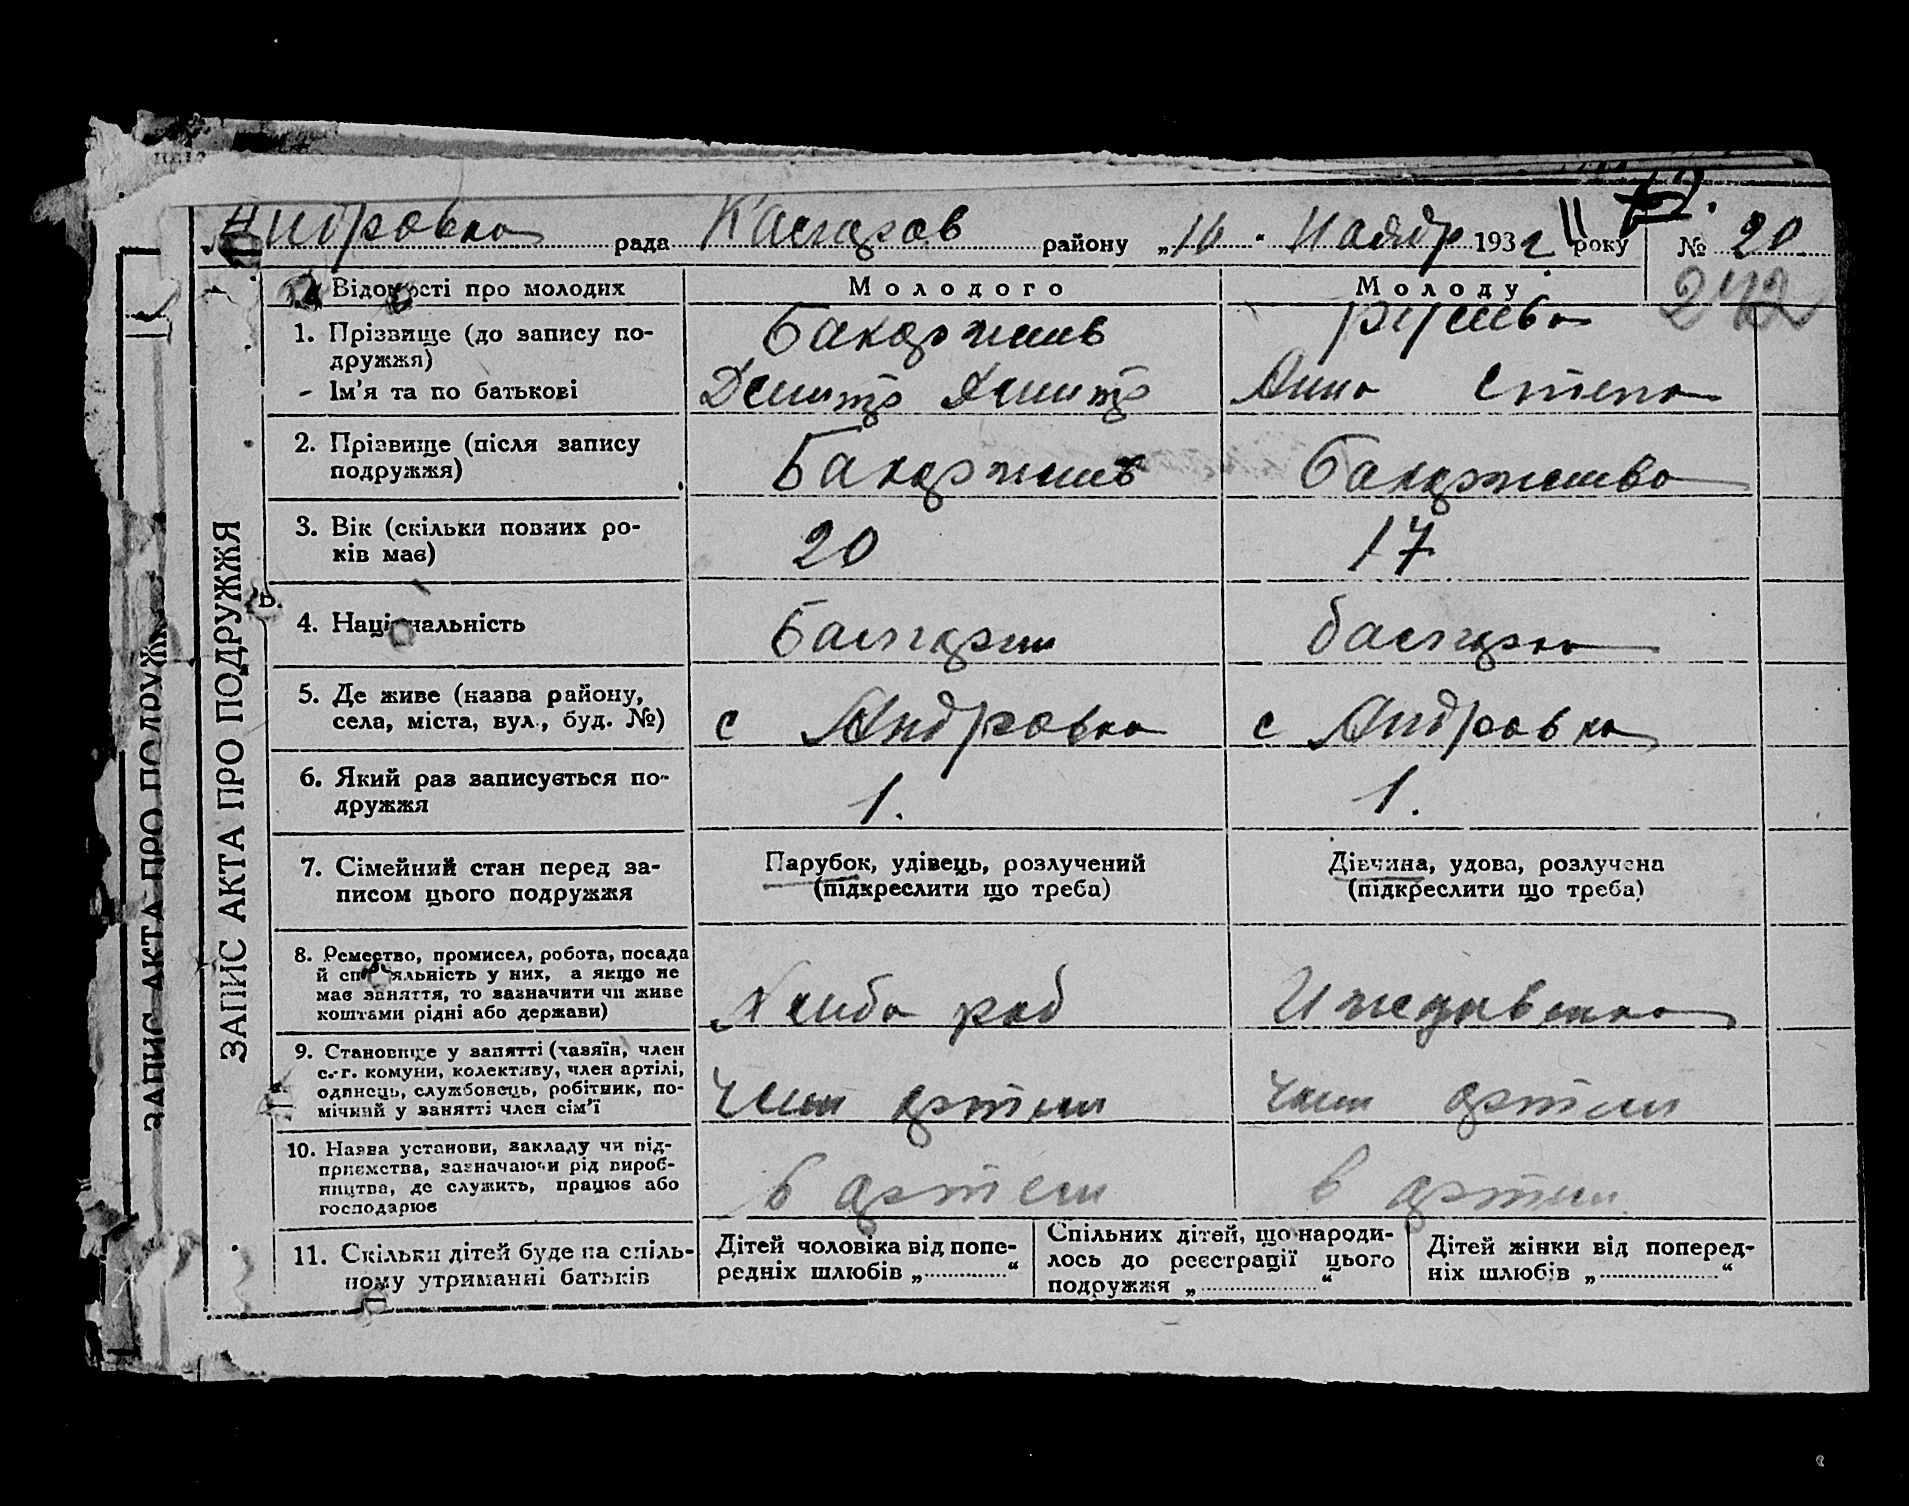 Андровка рада Кагаров району „16“ Ноябр 1932 року № 20
242
Відомості про молодих Молодого Молоду
1. Прізвище (до запису по-
дружжя)
Бакаржиев
- Ім'я та по батькові
Дмитр Дмитр Анна Степа
2. Прізвище (після запису
подружжя)
Бакаржиев Бакаржиева
3. Вік (скільки повних ро-
ків має)
20 17
4. Національність
Балгарин балгарка
5. Де живе (назва району,
села, міста, вул., буд. №)
с Андровка с Андровка
6. Який раз записується по-
дружжя
1. 1.
7. Сімейний стан перед за-
писом цього подружжя
Парубок, удівець, розлучений
(підкреслити що треба)
Дівчина, удова, розлучена
(підкреслити що треба)
8. Ремество, промисел, робота, посада
й спеціяльність у них, а якщо не
має заняття, то зазначити чи живе
коштами рідні або держави)
Хлиба роб Иждивенка
9. Становище у занятті (хазяїн, член
с.-г. комуни, колективу, член артілі,
одинець, службовець, робітник, по-
мічний у занятті член сім'ї
член артели член артели
10. Назва установи, закладу чи під-
приємства, зазначаючи рід вироб-
ництва, де служить, працює або
господарює
в артели в артели
11. Скільки дітей буде на спіль-
ному утриманні батьків
Дітей чоловіка від попе-
редніх шлюбів „ “
Спільних дітей, що народи-
лось до реєстрації цього
подружжя „ “
Дітей жінки від поперед-
ніх шлюбів „ “
ЗАПИС АКТА ПРО ПОДРУЖЖЯ
ЗАПИС АКТА ПРО ПОДРУЖ